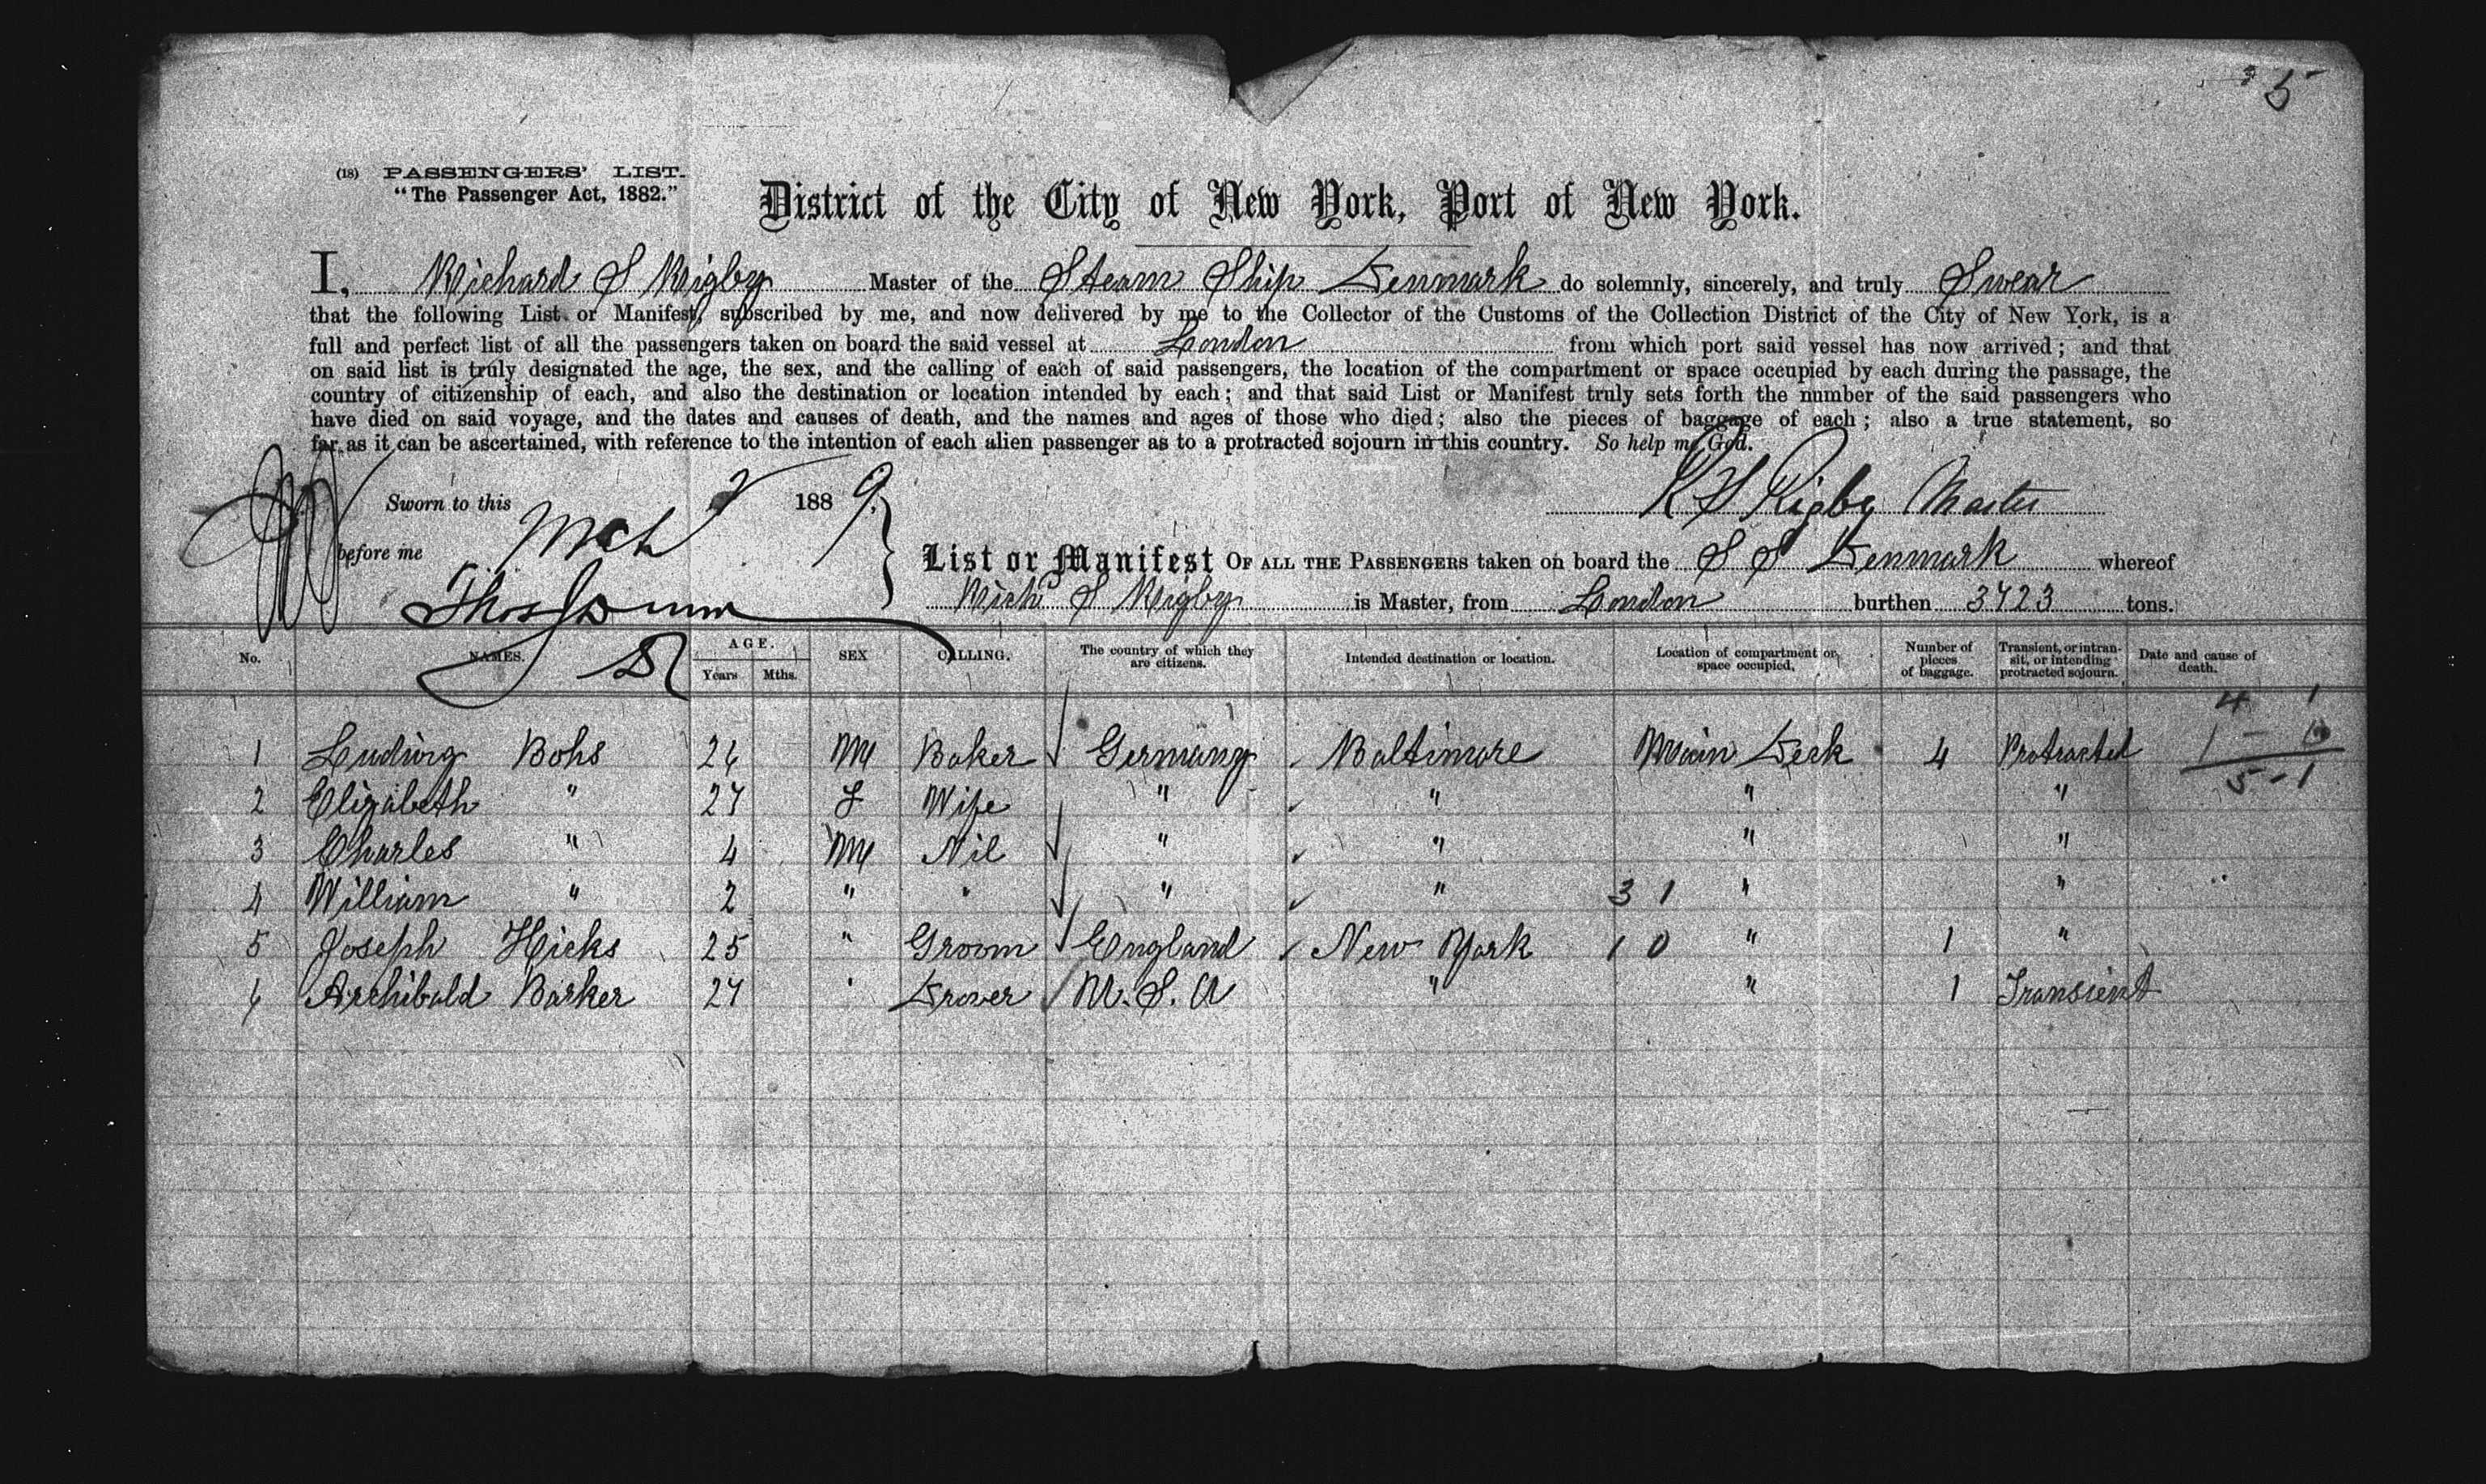 5
(18) PASSENGERS' LIST.
"The Passenger Act, 1882."
District of the City of New York, Port of New York.
I, Richard S Rigby Master of the Steam Ship Denmark do solemnly, sincerely, and truly Swear
that the following List or Manifest, subscribed by me, and now delivered by me to the Collector of the Customs of the Collection District of the City of New York, is a
full and perfect list of all the passengers taken on board the said vessel at London from which port said vessel has now arrived; and that
on said list is truly designated the age, the sex, and the calling of each of said passengers, the location of the compartment or space occupied by each during the passage, the
country of citizenship of each, and also the destination or location intended by each; and that said List or Manifest truly sets forth the number of the said passengers who
have died on said voyage, and the dates and causes of death, and the names and ages of those who died; also the pieces of baggage of each; also a true statement, so
far as it can be ascertained, with reference to the intention of each alien passenger as to a protracted sojourn in this country. So help me God.
Sworn to this Mch 1889.
R S Rigby Master
before me Thos Dunn
List or Manifest OF ALL THE PASSENGERS taken on board the S S Denmark whereof
Richd S Rigby is Master, from London burthen 3723 tons.
No. NAMES. AGE. Years Mths. SEX CALLING. The country of which they are citizens. Intended destination or location. Location of compartment or space occupied. Number of pieces of baggage. Transient, or in transit, or intending protracted sojourn. Date and cause of death.
4 1
1 Ludwig Bohs 26 M Baker Germany Baltimore Main Deck 4 Protracted 1 - 0
5 - 1
2 Elizabeth " 27 F Wife " " " "
3 Charles " 4 M Nil " " " "
4 William " 2 " " " " 3 1 " "
5 Joseph Hicks 25 " Groom England New York 1 0 " 1 "
6 Archibald Barker 27 " Drover U. S. A " " 1 Transient